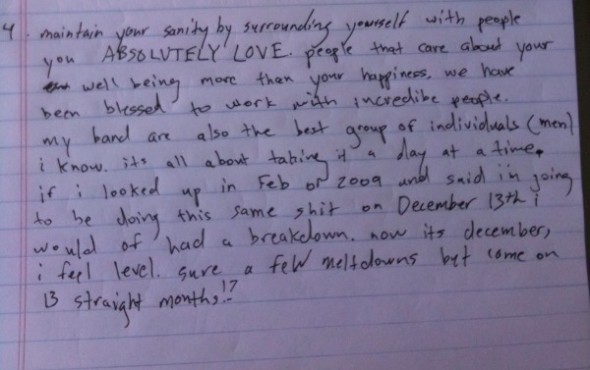 4. maintain your sanity by surrounding yourself with people
you ABSOLUTELY LOVE. people that care about your
well being more than your happiness, we have
been blessed to work with incredibe people.
my band are also the best group of individuals (men)
i know. its all about taking it a day at a time.
if i looked up in Feb of 2009 and said i'm going
to be doing this same shit on December 13th i
would of had a breakdown. now its december,
i feel level. sure a few meltdowns but come on
13 straight months!?